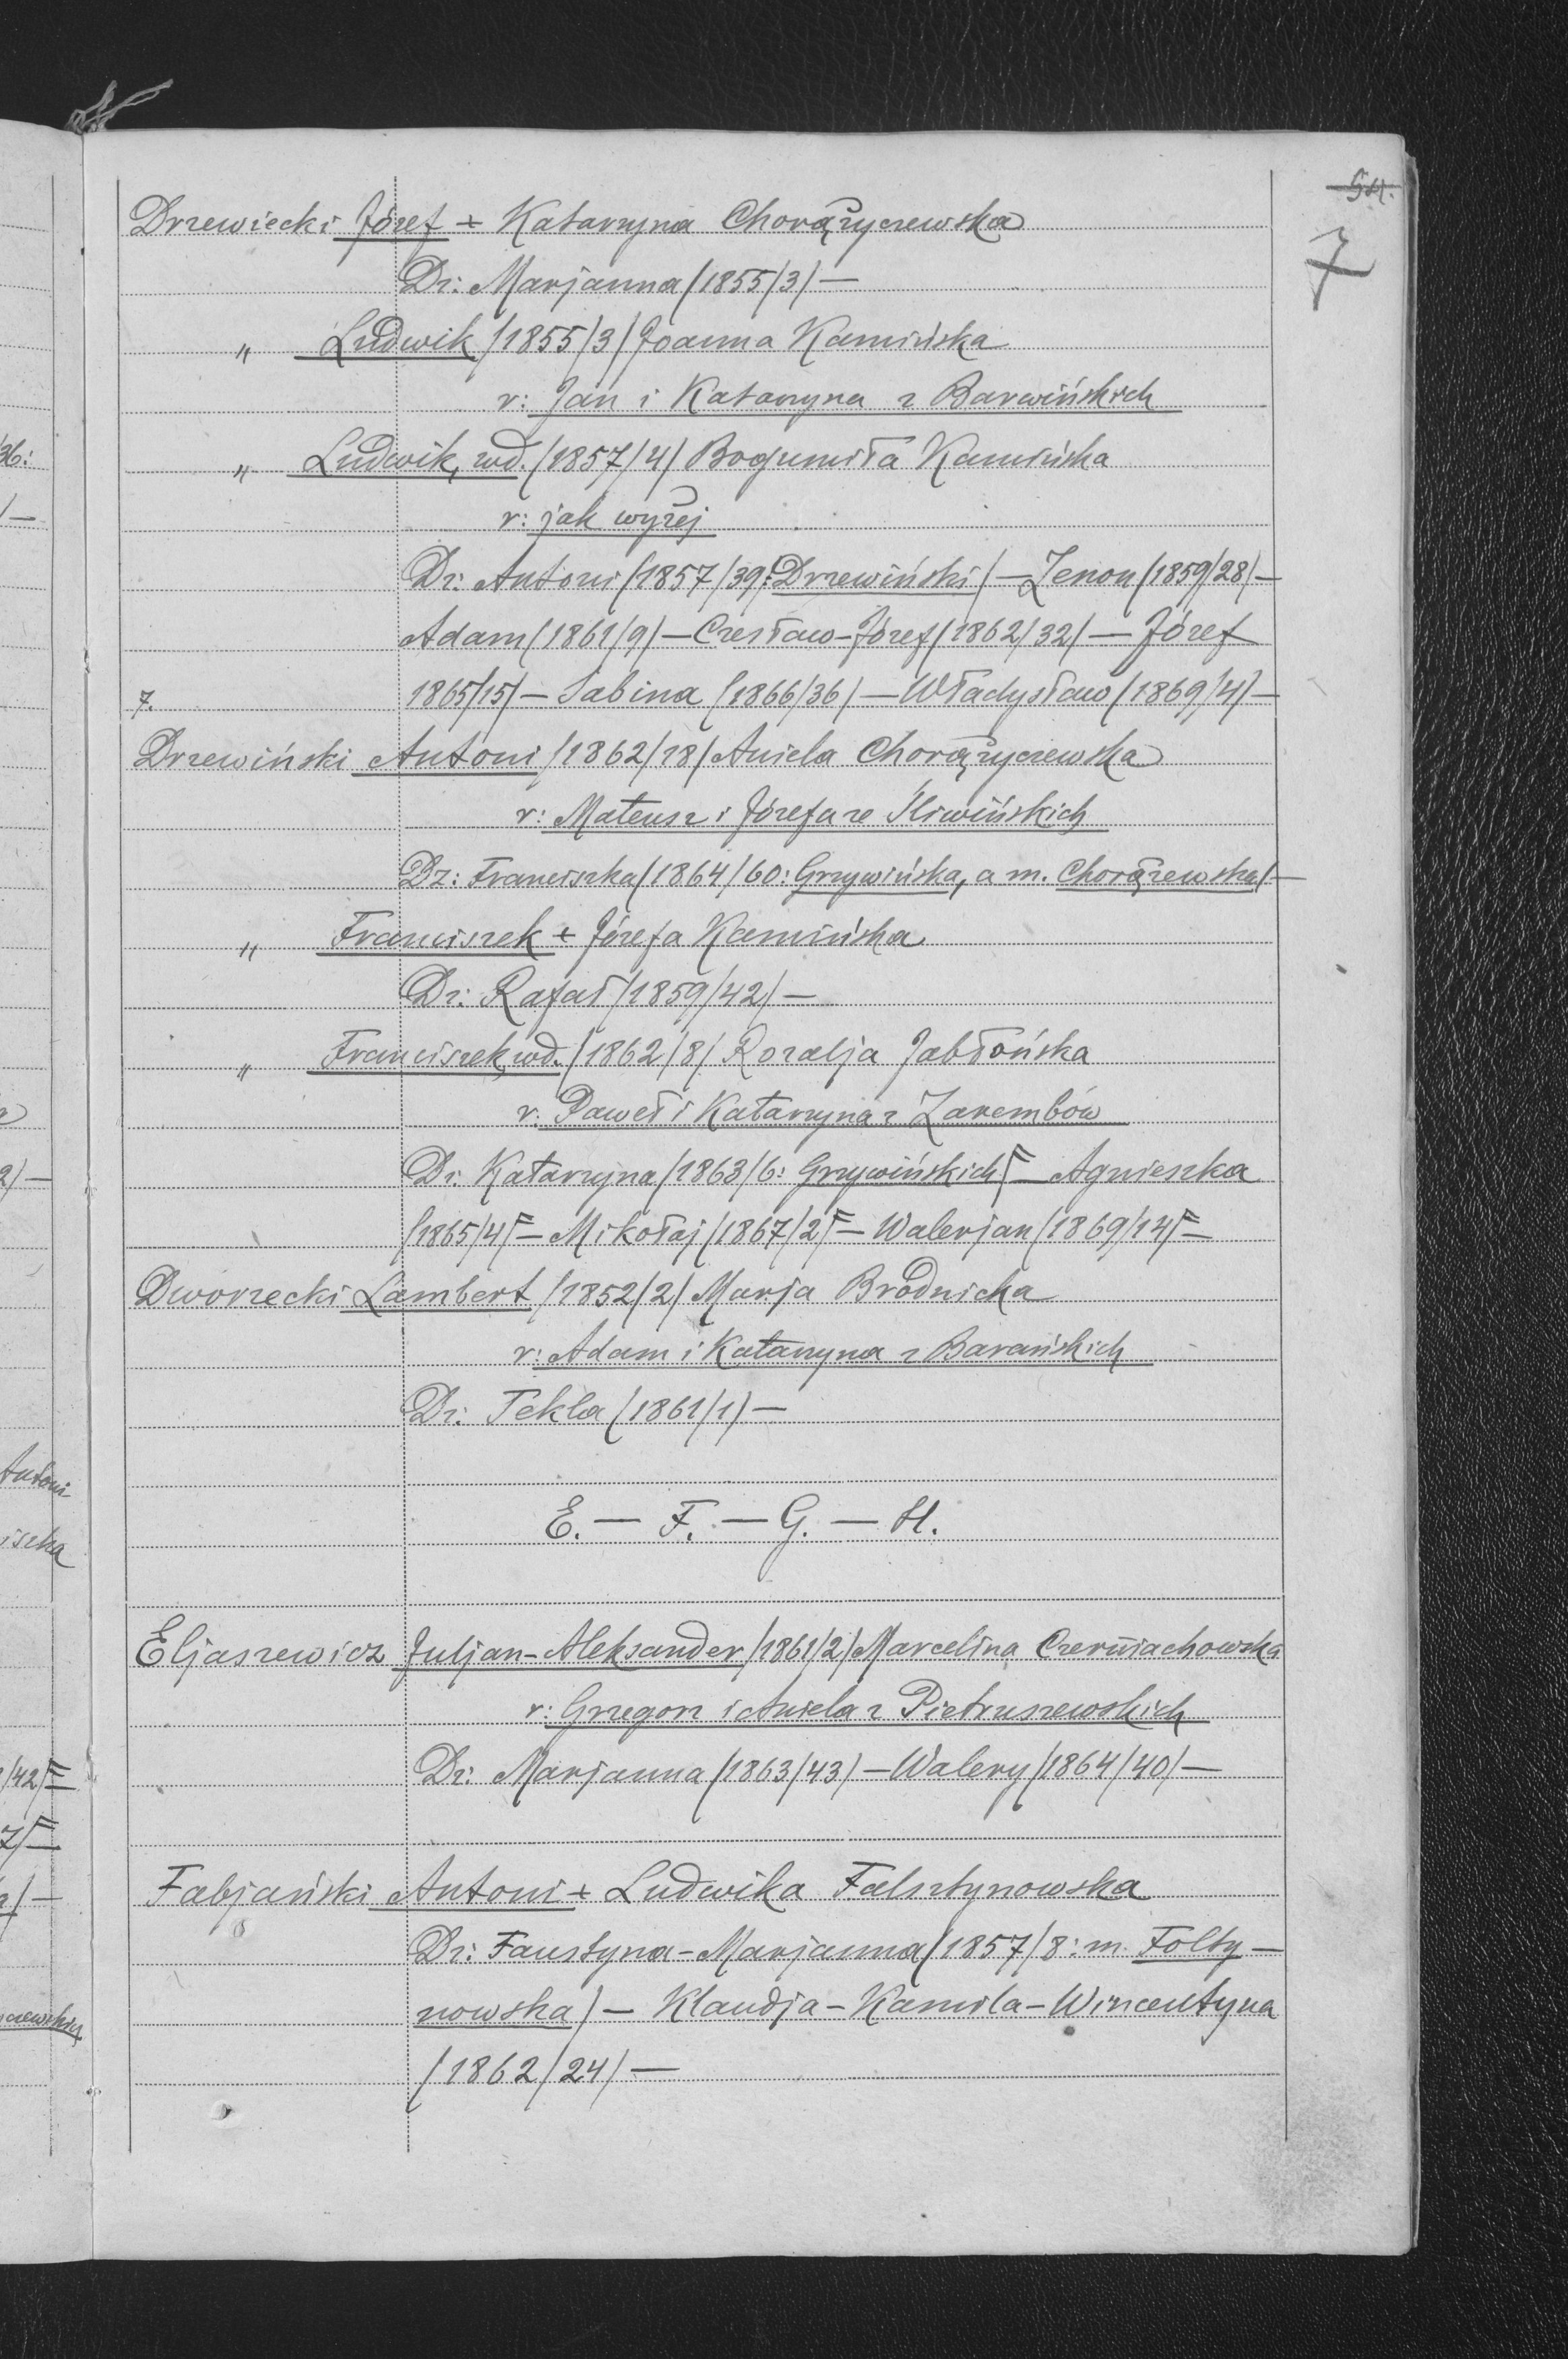 54.
7
Drzewiecki Józef + Katarzyna Chorążyczewska
Dz: Marjanna /1855/3/ —
„ Ludwik /1855/3/ Joanna Kamińska
r: Jan i Katarzyna z Barwińskich
„ Ludwik, wd. /1857/4/ Bogumiła Kamińska
r: jak wyżej
Dz: Antoni /1857/39: Drzewiński/ — Zenon /1859/28/ —
Adam /1861/9/ — Czesław-Józef /1862/32/ — Józef
7. 1865/15/ — Sabina /1866/36/ — Władysław /1869/4/ —
Drzewiński Antoni /1862/18/ Aniela Chorążyczewska
r: Mateusz i Józefa ze Śliwińskich
Dz: Franciszka /1864/60: Grzywińska, a m. Chorążewska/ —
„ Franciszek + Józefa Kamińska
Dz: Rafał /1859/42/ —
„ Franciszek, wd. /1862/8/ Rozalja Jabłońska
r: Paweł i Katarzyna z Zarembów
Dz: Katarzyna /1863/6: Grzywińskich/ — Agnieszka
/1865/4/ — Mikołaj /1867/2/ — Walerjan /1869/14/ —
Dworzecki Lambert /1852/2/ Marja Brodnicka
r: Adam i Katarzyna z Barańskich
Dz: Tekla /1861/1/ —
E. — F. — G. — H.
Eljaszewicz Juljan-Aleksander /1861/2/ Marcelina Czerniachowska
r: Grzegorz i Aniela z Pietruszewskich
Dz: Marjanna /1863/43/ — Walery /1864/40/ —
Fabjański Antoni + Ludwika Falsztynowska
Dz: Faustyna-Marjanna /1857/8: m. Folty-
nowska/ — Klaudja-Kamila-Wincentyna
/1862/24/ —